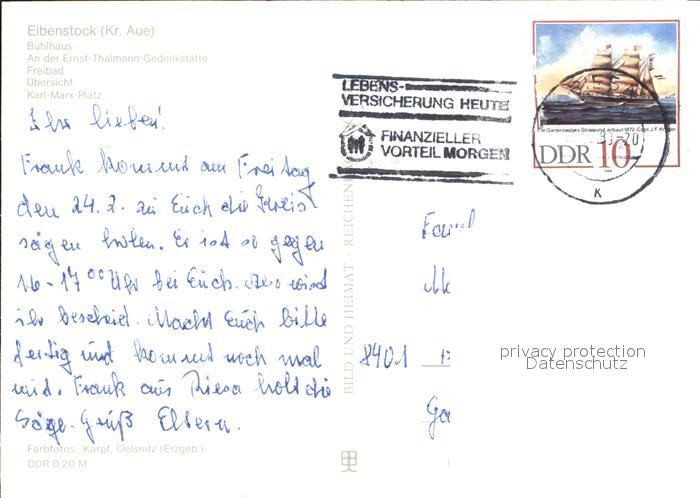 Eibenstock (Kr. Aue)
Bühlhaus
An der Ernst-Thälmann-Gedenkstätte
Freibad
Übersicht
Karl-Marx-Platz
Ihr lieben!
Frank kommt am Freitag
den 24.2. zu Euch die Kreis
sägen holen. Er ist so gegen
16-17 00 Uhr bei Euch. Also wisst
ihr bescheid. Macht Euch bitte
fertig und kommt noch mal
mit. Frank aus Riesa holt die
Säge. Gruß Eltern.
Farbfotos: Karpf, Oelsnitz (Erzgeb.)
DDR 0,20 M
BILD UND HEIMAT · REICHEN
LEBENS-
VERSICHERUNG HEUTE
FINANZIELLER
VORTEIL MORGEN
DDR 10
K
8401
privacy protection
Datenschutz